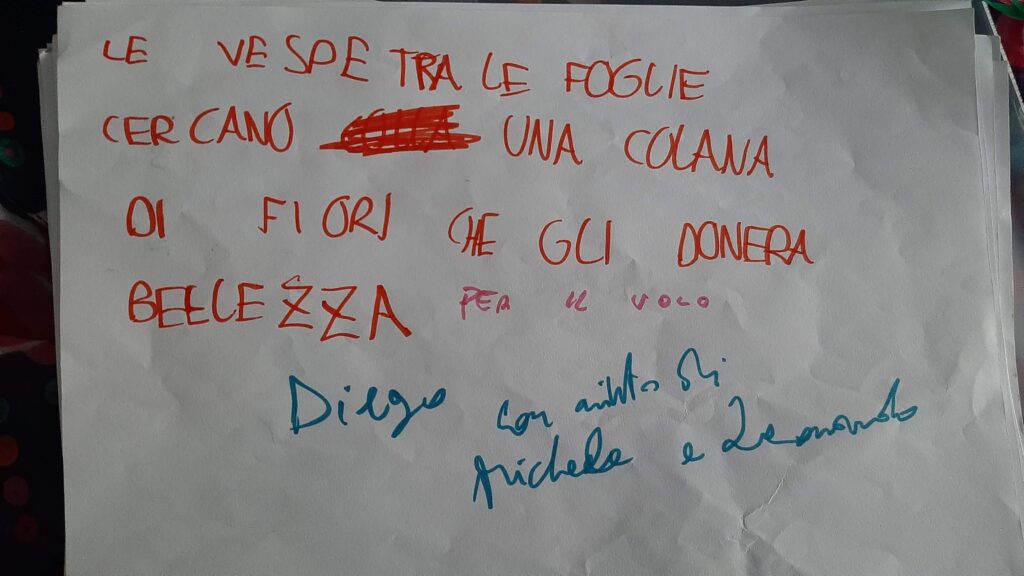 LE VESPE TRA LE FOGLIE
CERCANO UNA COLANA
DI FIORI CHE GLI DONERA
BELLEZZA PER IL VOLO
Diego con
Michele e Leonardo